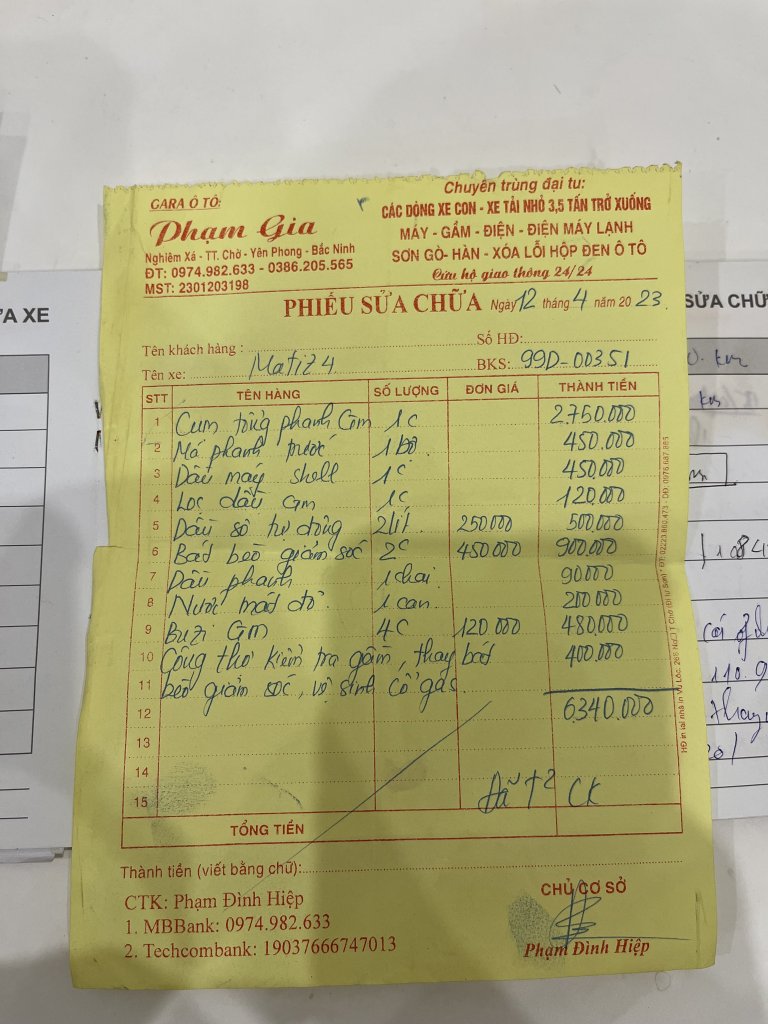 GARA Ô TÔ:
Phạm Gia
Nghiêm Xá - TT. Chờ - Yên Phong - Bắc Ninh
ĐT: 0974.982.633 - 0386.205.565
MST: 2301203198
Chuyên trùng đại tu:
CÁC DÒNG XE CON - XE TẢI NHỎ 3,5 TẤN TRỞ XUỐNG
MÁY - GẦM - ĐIỆN - ĐIỆN MÁY LẠNH
SƠN GÒ- HÀN - XÓA LỖI HỘP ĐEN Ô TÔ
Cứu hộ giao thông 24/24
PHIẾU SỬA CHỮA Ngày 12 tháng 4 năm 20 23.
Tên khách hàng : Số HĐ:
Tên xe: Matiz 4 BKS: 99D-00351
STT TÊN HÀNG SỐ LƯỢNG ĐƠN GIÁ THÀNH TIỀN
1 Cụm tổng phanh Gm 1c 2.750.000
2 Má phanh trước 1 bộ 450.000
3 Dầu máy shell 1c 450.000
4 Lọc dầu Gm 1c 120.000
5 Dầu số tự động 2 lít 250.000 500.000
6 Bát bèo giảm sóc 2c 450.000 900.000
7 Dầu phanh 1 chai 90.000
8 Nước mát đỏ 1 can 200.000
9 Buzi Gm 4c 120.000 480.000
10 Công thợ kiểm tra gầm, thay bát 400.000
11 bèo giảm sóc, vệ sinh cổ gas.
12 6340.000
13
14
15 Đã T² CK
TỔNG TIỀN
Thành tiền (viết bằng chữ):
CTK: Phạm Đình Hiệp
1. MBBank: 0974.982.633
2. Techcombank: 19037666747013
CHỦ CƠ SỞ
Phạm Đình Hiệp
ỮA XE
SỬA CHỮ
km
thay